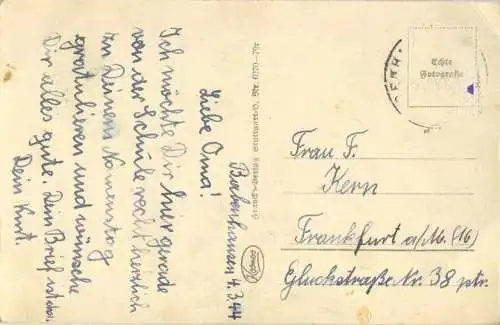 Babenhausen 4.3.44
Liebe Oma!
Ich möchte Dir hier gerade
von der Schule recht herzlich
zu Deinem Namenstag
gratulieren und wünsche
Dir alles gute. Dein Brief
Dein Kurt.
Echte
Fotografie
Frau F.
Kern
Frankfurt a/M. (16)
Gluckstraße Nr. 38 ptr.